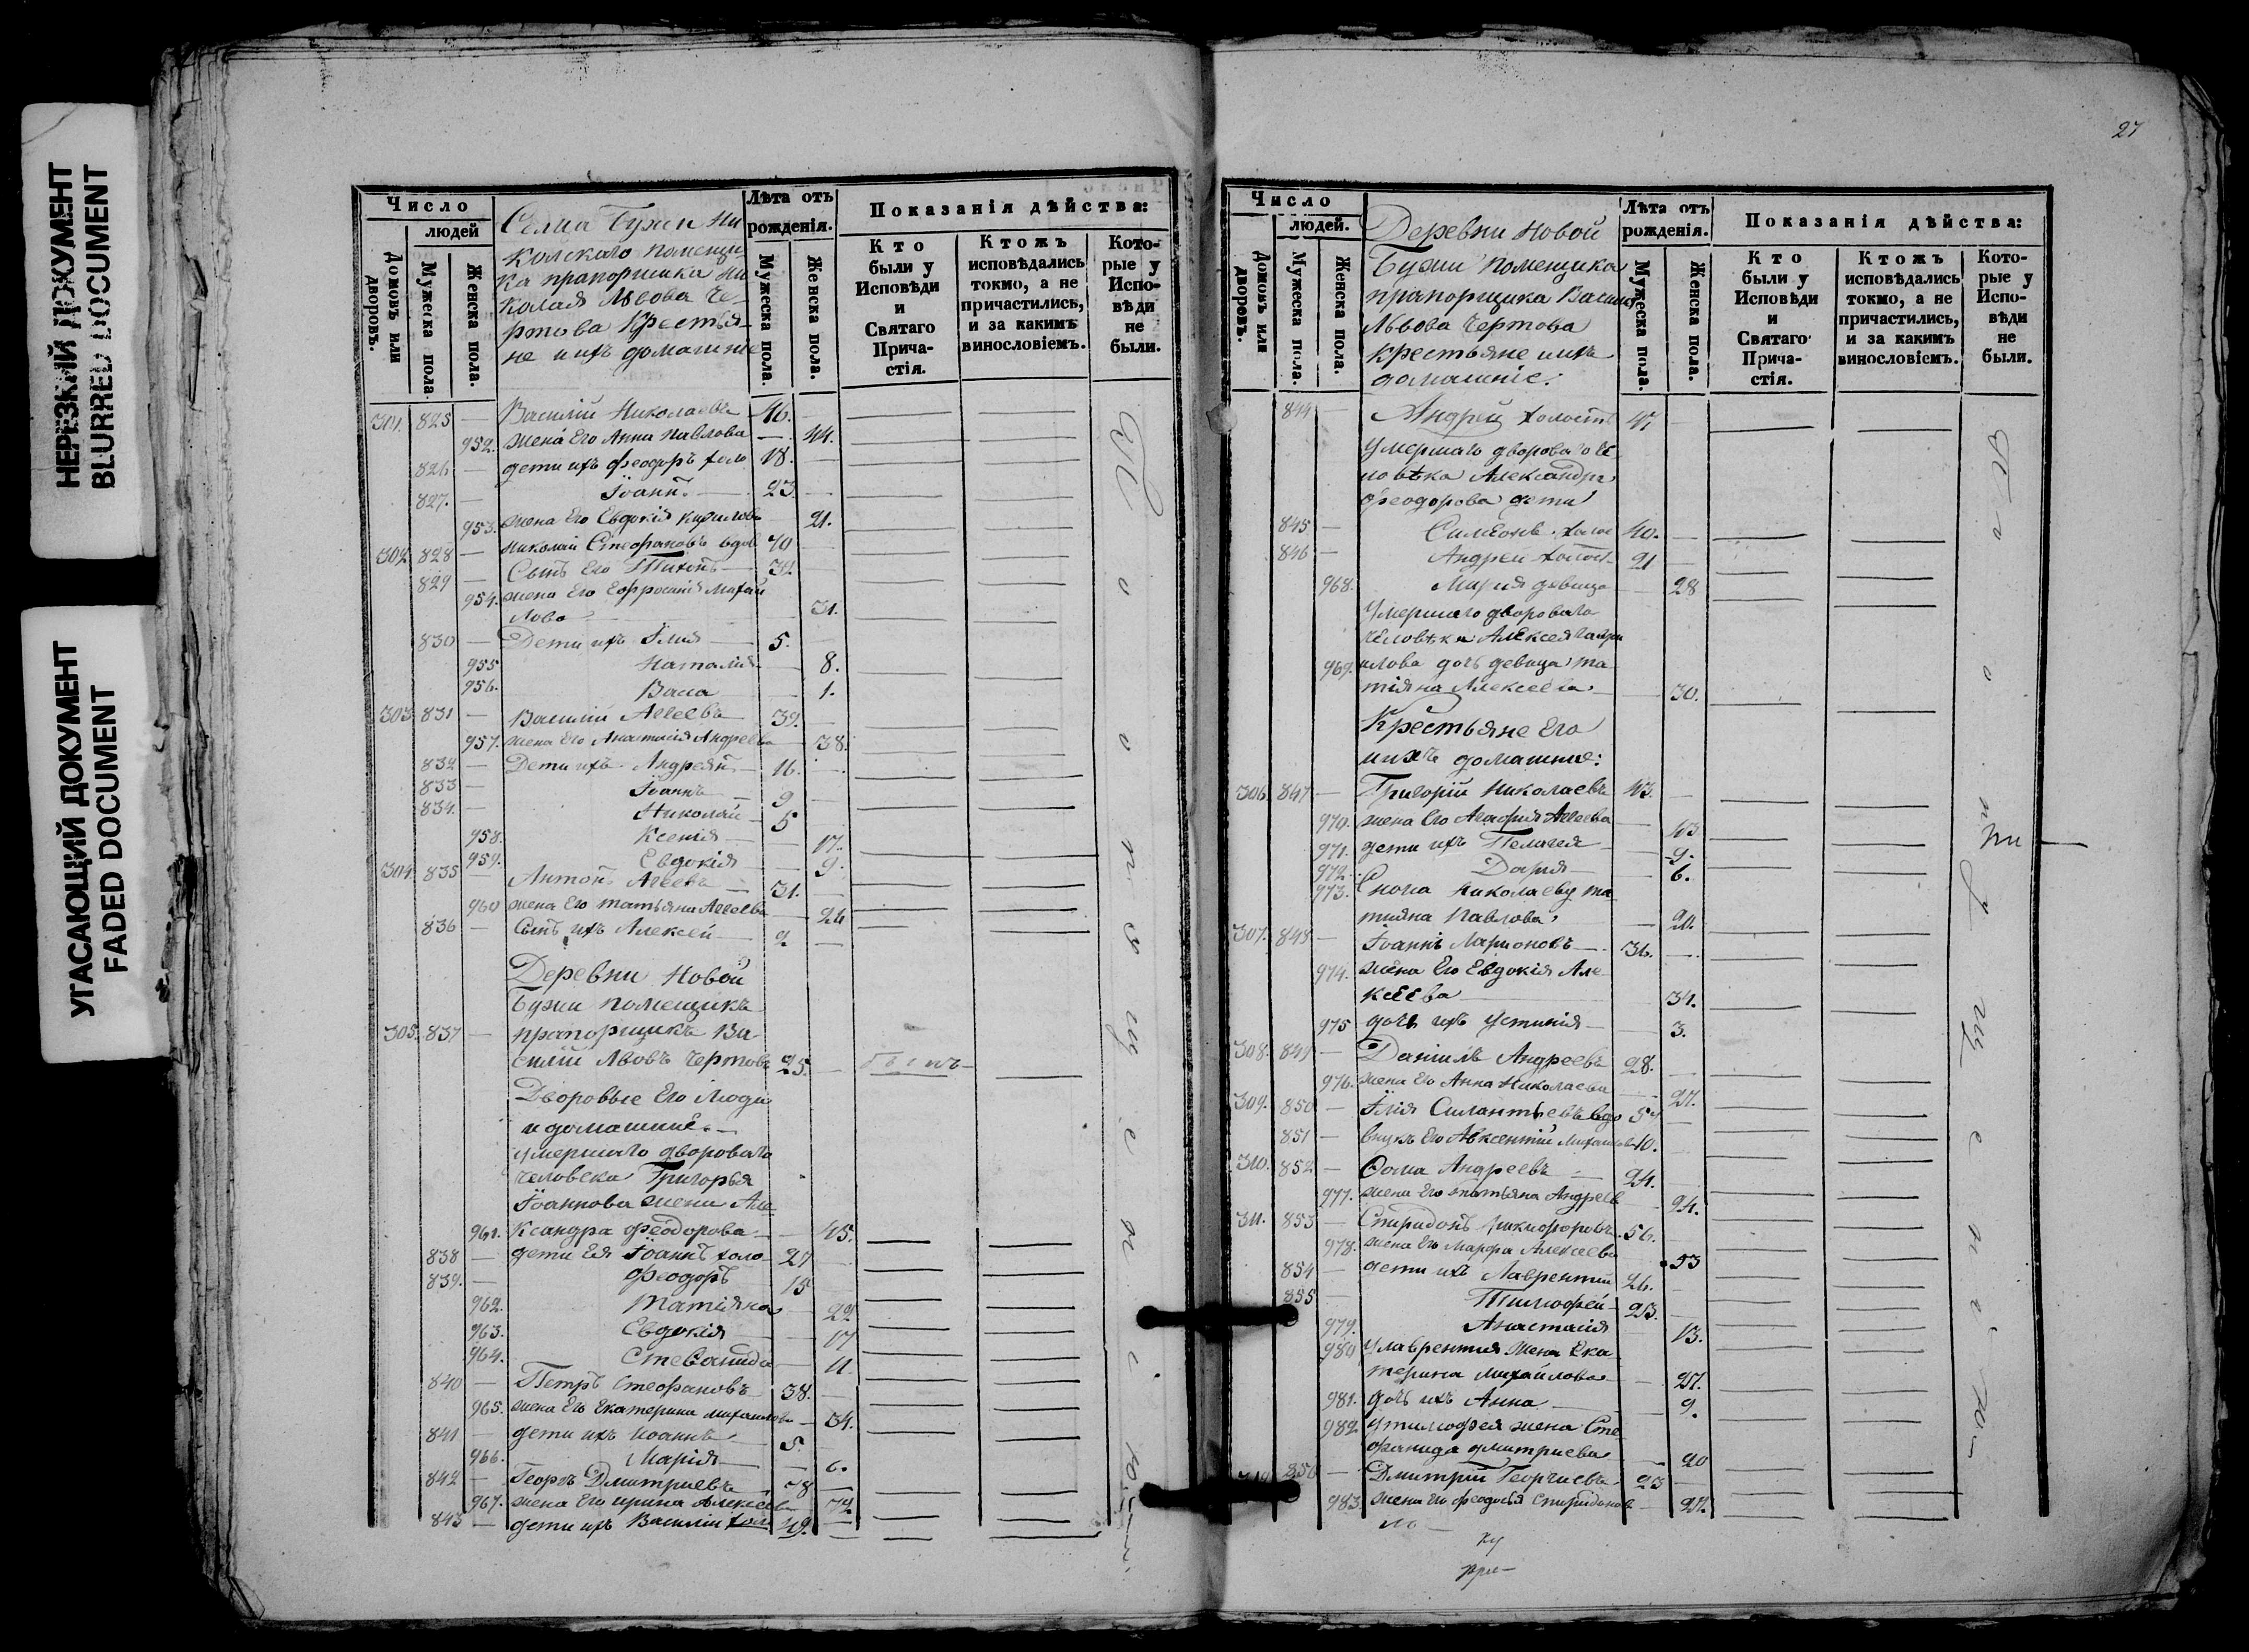 НЕРЕЗКИЙ ДОКУМЕНТ
BLURRED DOCUMENT
УГАСАЮЩИЙ ДОКУМЕНТ
FADED DOCUMENT
Число
людей
Домовъ или дворовъ.
Мужеска пола
Женска пола.
Села Бужи Ни
колскаго помещи
ка прапорщика Ни
колая Львова Че-
ртова Крестья-
не и ихъ домашние
Лѣта отъ рожденія.
Мужеска пола.
Женска пола.
Показанія дѣйства:
Кто были у Исповѣди и Святаго Прича-стія.
Ктожъ исповѣдались токмо, а не причастились, и за какимъ винословіемъ.
Кото-рые у Испо-вѣди не были.
301. 825 — Василій Николаевъ 46.
952. жена Его Анна Павлова — 44.
826 — дети ихъ Феодоръ холо 18. —
827. — Іоаннъ — 23. —
953. жена Его Евдокія Кирилова 21.
302 828 — Николай Стефановъ вдов 70
829 — Сынъ Его Тихонъ — 32
954. жена Его Ефросинія Михай
лова 31.
830 — Дети ихъ Илия — 5.
955 Наталия 8.
956. Васа — 1.
303 831 — Василий Агеевъ 39. —
957. жена Его Анастасія Андреева 38.
832 — Дети ихъ Андреянъ 16. —
833 — Іоаннъ — 9 —
834. — Николай — 5
958. Ксенія — 17.
959. Евдокія 9.
304 835 — Антонъ Агеевъ — 31.
960 жена Его татьяна Агеева 26
836 — Сынъ ихъ Алексей — 9. —
Деревни Новой
Бужи помещикъ
305. 837 — прапорщикъ Ва
силій Львовъ Чертовъ 25. — былъ
Дворовые Его Люди
и домашние. —
умершаго двороваго
человека Григорья
Іоаннова жена Але
961. ксандра Феодорова — 45.
838 — дети Ея Іоаннъ холо 21
839. — Феодоръ 15
962. Татіяна — 22
963. Евдокія 17
964. Стефанида 11.
840 — Петръ Стефановъ 38. —
965. жена Его Екатерина Михаилова — 34.
841 — дети ихъ Іоаннъ 5.
966. Марія — 6.
842 — Георгъ Дмитриевъ 78 —
967. жена Его ирина Алексеева 72
843 — дети ихъ Василій хол 49. —
27
Число
людей.
Домовъ или дворовъ.
Мужеска пола.
Женска пола.
Деревни Новой
Бужи помещика
прапорщика Васил
Львова Чертова
Крестьяне и ихъ
домашніе:
Лѣта отъ рожденія.
Мужеска пола.
Женска пола.
Показанія дѣйства:
Кто были у Исповѣди и Святаго Прича-стія.
Ктожъ исповѣдались токмо, а не причастились, и за какимъ винословіемъ.
Кото-рые у Испо-вѣди не были.
844 — Андрей холост
умершаго двороваго Че
ловѣка Александра
Феодорова дети
845 — Симеонъ холос 40. —
846 — Андрей холост 21 —
968. Мария девица — 28
умершаго двороваго
человѣка Алексея Гаври
969. илова дочь девица Та
тіяна Алексеева — 30.
Крестьяне Его
и ихъ домашние:
306. 847 — Григорій Николаевъ 43. —
970. жена Его Агафия Агеева — 43
971. дети ихъ Пелагея — 9.
972. Дария — 6.
973. Сноха Николаеву та
тияна Павлова —
307. 848 — Іоаннъ Ларионовъ — 36. —
974. жена Его Евдокія Але
ксеева 34.
975 дочь ихъ Устинія — 3.
308. 849 — Даниилъ Андреевъ 28.
976. жена Его Анна Николаева — 27.
309. 850 — Илія Силантьевъ вдо
851 — внукъ Его Авксентій Михаиловъ 10. —
310. 852 — Фома Андреевъ — 24.
977. жена Его татьяна Андреев 24.
311. 853 — Спиридонъ Никифоровъ 56. —
978. жена Его Марфа Алексеева 53
854 — дети ихъ Лаврентий 26. —
855 — Тимофей 23. —
979. Анастасія 13.
980 У лаврентия жена Ека
терина Михайлова — 27.
981. дочь ихъ Анна 9.
982 У тимофея жена Сте
фанида дмитриева — 20
856 — Дмитрій Георгиевъ 23 —
983. жена Его Феодосья Спиридонов